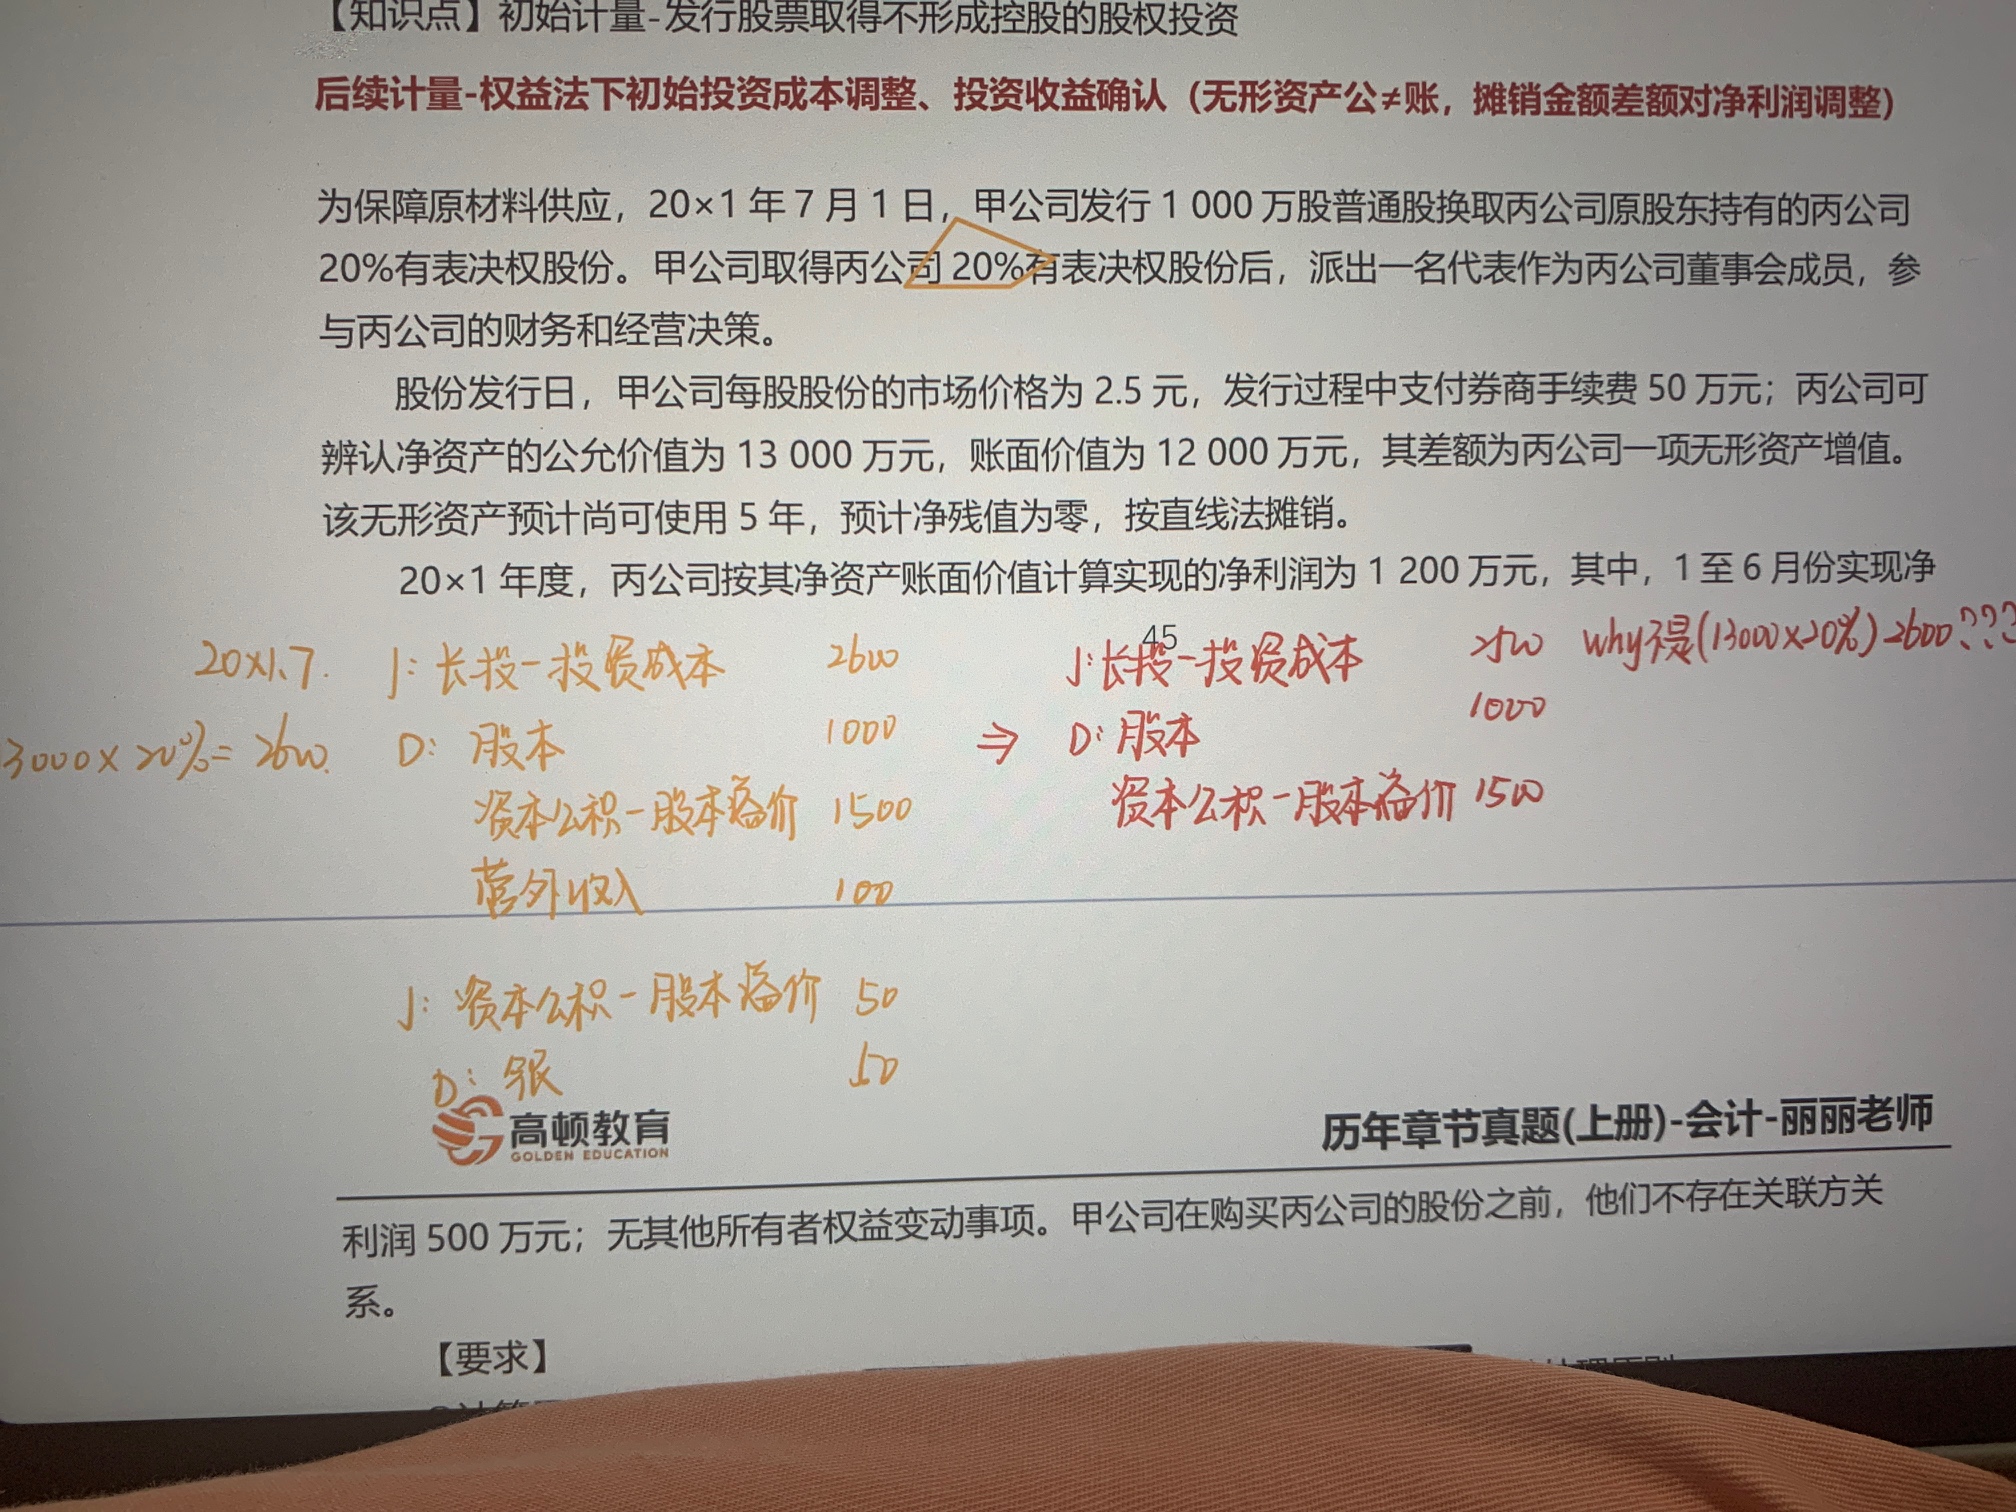 【知识点】初始计量-发行股票取得不形成控股的股权投资
后续计量-权益法下初始投资成本调整、投资收益确认（无形资产公≠账，摊销金额差额对净利润调整）
为保障原材料供应，20×1 年 7 月 1 日，甲公司发行 1 000 万股普通股换取丙公司原股东持有的丙公司
20%有表决权股份。甲公司取得丙公司 20%有表决权股份后，派出一名代表作为丙公司董事会成员，参
与丙公司的财务和经营决策。
股份发行日，甲公司每股股份的市场价格为 2.5 元，发行过程中支付券商手续费 50 万元；丙公司可
辨认净资产的公允价值为 13 000 万元，账面价值为 12 000 万元，其差额为丙公司一项无形资产增值。
该无形资产预计尚可使用 5 年，预计净残值为零，按直线法摊销。
20×1 年度，丙公司按其净资产账面价值计算实现的净利润为 1 200 万元，其中，1 至 6 月份实现净
45
20×1.7. J: 长投-投资成本 2600
3000×20%=2600. D: 股本 1000
资本公积-股本溢价 1500
营外收入 100
⇒ J:长投-投资成本 2500 why不是(13000×20%)2600???
D:股本 1000
资本公积-股本溢价 1500
J: 资本公积-股本溢价 50
D: 银 50
高顿教育
GOLDEN EDUCATION
历年章节真题(上册)-会计-丽丽老师
利润 500 万元；无其他所有者权益变动事项。甲公司在购买丙公司的股份之前，他们不存在关联方关
系。
【要求】